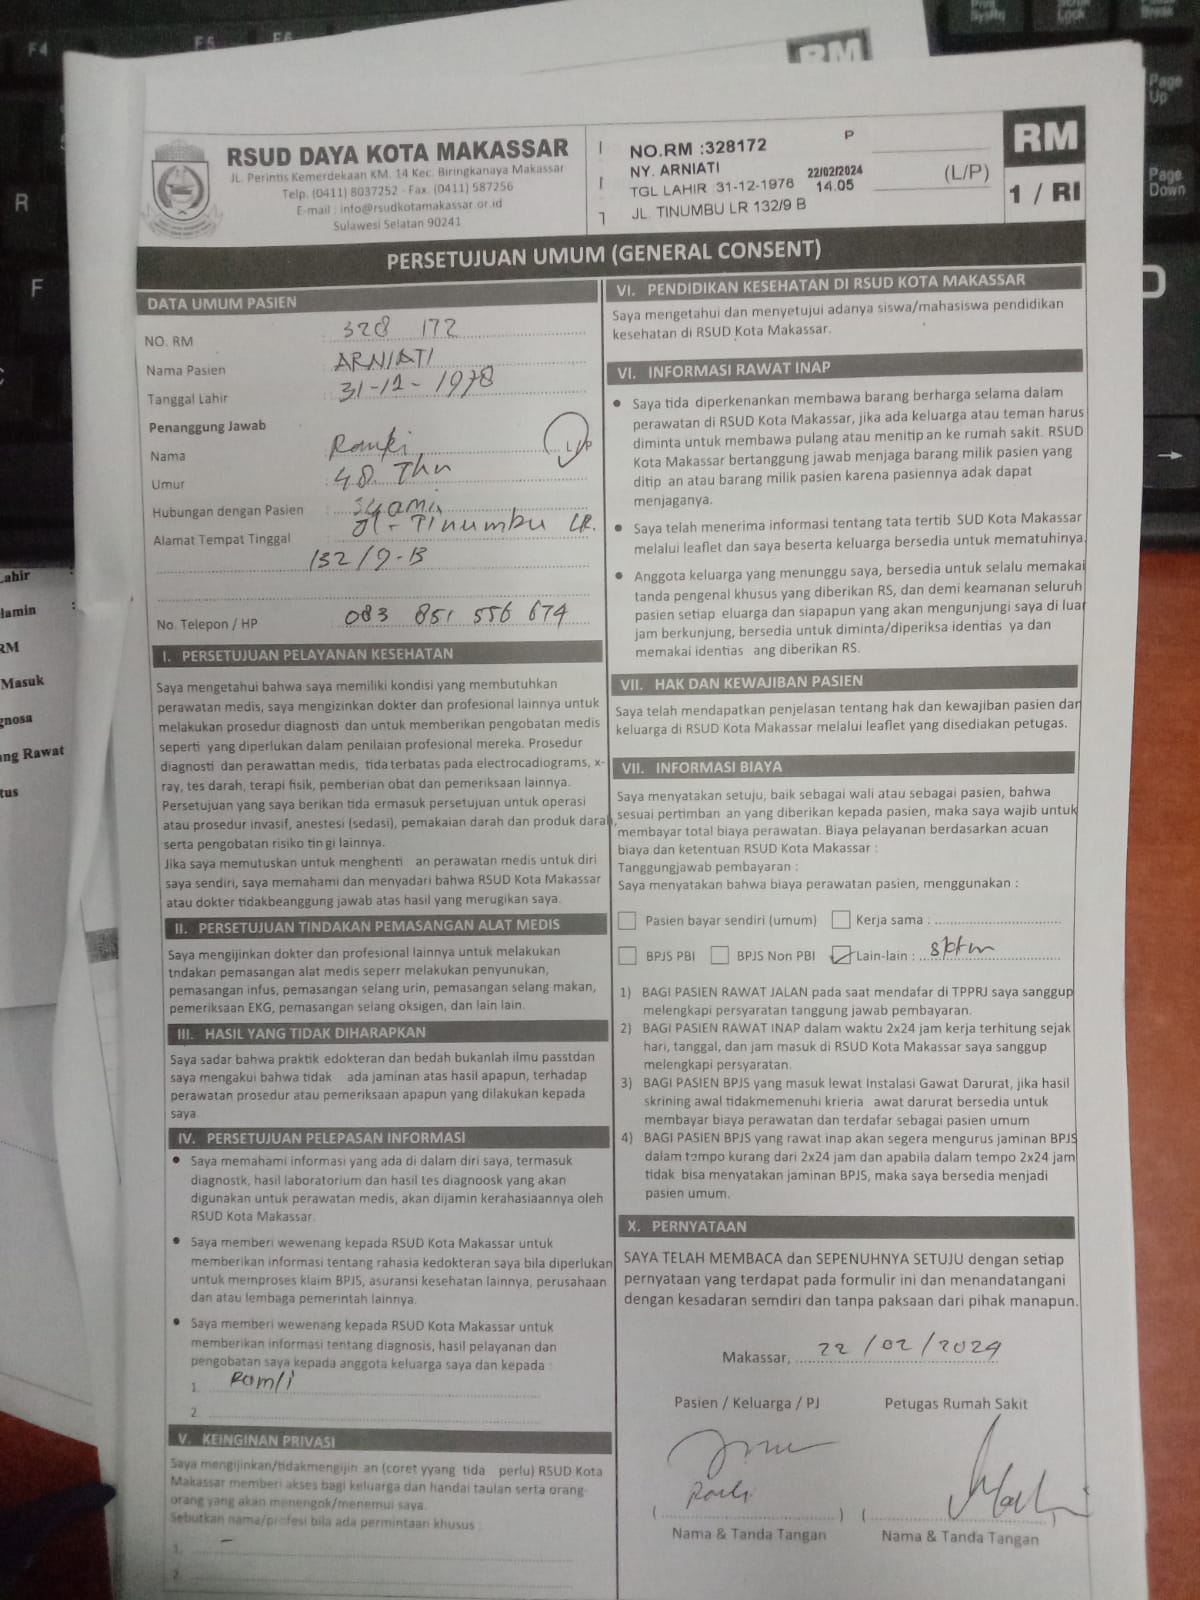 F4
F5
F6
Print
SysRq
Scroll
Lock
Pause
Break
Page
Up
Page
Down
R
F
RM
RSUD DAYA KOTA MAKASSAR
JL. Perintis Kemerdekaan KM. 14 Kec. Biringkanaya Makassar
Telp. (0411) 8037252 - Fax. (0411) 587256
E-mail : info@rsudkotamakassar.or.id
Sulawesi Selatan 90241
NO.RM :328172 P
NY. ARNIATI
TGL LAHIR 31-12-1978
22/02/2024
14.05
JL. TINUMBU LR 132/9 B
(L/P)
RM
1 / RI
PERSETUJUAN UMUM (GENERAL CONSENT)
DATA UMUM PASIEN
NO. RM : 328 172
Nama Pasien : ARNIATI
Tanggal Lahir : 31-12-1978
Penanggung Jawab
Nama : Ramli L/P
Umur : 48 Thn
Hubungan dengan Pasien : Suami
Alamat Tempat Tinggal : Jl. Tinumbu LR.
132/9-B
No. Telepon / HP : 083 851 556 674
I. PERSETUJUAN PELAYANAN KESEHATAN
Saya mengetahui bahwa saya memiliki kondisi yang membutuhkan
perawatan medis, saya mengizinkan dokter dan profesional lainnya untuk
melakukan prosedur diagnosti dan untuk memberikan pengobatan medis
seperti yang diperlukan dalam penilaian profesional mereka. Prosedur
diagnosti dan perawattan medis, tida terbatas pada electrocadiograms, x-
ray, tes darah, terapi fisik, pemberian obat dan pemeriksaan lainnya.
Persetujuan yang saya berikan tida ermasuk persetujuan untuk operasi
atau prosedur invasif, anestesi (sedasi), pemakaian darah dan produk darah,
serta pengobatan risiko tin gi lainnya.
Jika saya memutuskan untuk menghenti an perawatan medis untuk diri
saya sendiri, saya memahami dan menyadari bahwa RSUD Kota Makassar
atau dokter tidakbeanggung jawab atas hasil yang merugikan saya.
II. PERSETUJUAN TINDAKAN PEMASANGAN ALAT MEDIS
Saya mengijinkan dokter dan profesional lainnya untuk melakukan
tndakan pemasangan alat medis seperr melakukan penyunukan,
pemasangan infus, pemasangan selang urin, pemasangan selang makan,
pemeriksaan EKG, pemasangan selang oksigen, dan lain lain.
III. HASIL YANG TIDAK DIHARAPKAN
Saya sadar bahwa praktik edokteran dan bedah bukanlah ilmu passtdan
saya mengakui bahwa tidak ada jaminan atas hasil apapun, terhadap
perawatan prosedur atau pemeriksaan apapun yang dilakukan kepada
saya.
IV. PERSETUJUAN PELEPASAN INFORMASI
• Saya memahami informasi yang ada di dalam diri saya, termasuk
diagnostk, hasil laboratorium dan hasil tes diagnoosk yang akan
digunakan untuk perawatan medis, akan dijamin kerahasiaannya oleh
RSUD Kota Makassar.
• Saya memberi wewenang kepada RSUD Kota Makassar untuk
memberikan informasi tentang rahasia kedokteran saya bila diperlukan
untuk memproses klaim BPJS, asuransi kesehatan lainnya, perusahaan
dan atau lembaga pemerintah lainnya.
• Saya memberi wewenang kepada RSUD Kota Makassar untuk
memberikan informasi tentang diagnosis, hasil pelayanan dan
pengobatan saya kepada anggota keluarga saya dan kepada :
1. Ramli
2.
V. KEINGINAN PRIVASI
Saya mengijinkan/tidakmengijin an (coret yyang tida perlu) RSUD Kota
Makassar memberi akses bagi keluarga dan handai taulan serta orang-
orang yang akan menengok/menemui saya.
Sebutkan nama/profesi bila ada permintaan khusus :
1. -
2.
VI. PENDIDIKAN KESEHATAN DI RSUD KOTA MAKASSAR
Saya mengetahui dan menyetujui adanya siswa/mahasiswa pendidikan
kesehatan di RSUD Kota Makassar.
VI. INFORMASI RAWAT INAP
• Saya tida diperkenankan membawa barang berharga selama dalam
perawatan di RSUD Kota Makassar, jika ada keluarga atau teman harus
diminta untuk membawa pulang atau menitip an ke rumah sakit. RSUD
Kota Makassar bertanggung jawab menjaga barang milik pasien yang
ditip an atau barang milik pasien karena pasiennya adak dapat
menjaganya.
• Saya telah menerima informasi tentang tata tertib SUD Kota Makassar
melalui leaflet dan saya beserta keluarga bersedia untuk mematuhinya
• Anggota keluarga yang menunggu saya, bersedia untuk selalu memakai
tanda pengenal khusus yang diberikan RS, dan demi keamanan seluruh
pasien setiap eluarga dan siapapun yang akan mengunjungi saya di luar
jam berkunjung, bersedia untuk diminta/diperiksa identias ya dan
memakai identias ang diberikan RS.
VII. HAK DAN KEWAJIBAN PASIEN
Saya telah mendapatkan penjelasan tentang hak dan kewajiban pasien dan
keluarga di RSUD Kota Makassar melalui leaflet yang disediakan petugas.
VII. INFORMASI BIAYA
Saya menyatakan setuju, baik sebagai wali atau sebagai pasien, bahwa
sesuai pertimban an yang diberikan kepada pasien, maka saya wajib untuk
membayar total biaya perawatan. Biaya pelayanan berdasarkan acuan
biaya dan ketentuan RSUD Kota Makassar :
Tanggungjawab pembayaran :
Saya menyatakan bahwa biaya perawatan pasien, menggunakan :
Pasien bayar sendiri (umum) Kerja sama :
BPJS PBI BPJS Non PBI Lain-lain : sktm
1) BAGI PASIEN RAWAT JALAN pada saat mendafar di TPPRJ saya sanggup
melengkapi persyaratan tanggung jawab pembayaran.
2) BAGI PASIEN RAWAT INAP dalam waktu 2x24 jam kerja terhitung sejak
hari, tanggal, dan jam masuk di RSUD Kota Makassar saya sanggup
melengkapi persyaratan.
3) BAGI PASIEN BPJS yang masuk lewat Instalasi Gawat Darurat, jika hasil
skrining awal tidakmemenuhi krieria awat darurat bersedia untuk
membayar biaya perawatan dan terdafar sebagai pasien umum
4) BAGI PASIEN BPJS yang rawat inap akan segera mengurus jaminan BPJS
dalam tempo kurang dari 2x24 jam dan apabila dalam tempo 2x24 jam
tidak bisa menyatakan jaminan BPJS, maka saya bersedia menjadi
pasien umum.
X. PERNYATAAN
SAYA TELAH MEMBACA dan SEPENUHNYA SETUJU dengan setiap
pernyataan yang terdapat pada formulir ini dan menandatangani
dengan kesadaran semdiri dan tanpa paksaan dari pihak manapun.
Makassar, 22/02/2024
Pasien / Keluarga / PJ Petugas Rumah Sakit
Ramli
Nama & Tanda Tangan Nama & Tanda Tangan
Lahir :
lamin
RM
Masuk
gnosa
ang Rawat
tus